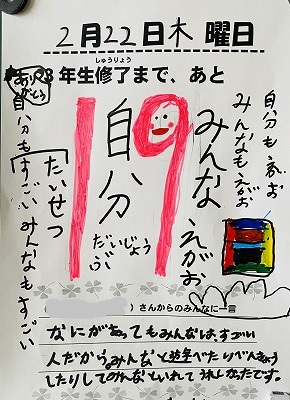 2月22日木曜日
しゅうりょう
3年生修了まで、あと
19
ありがとう
自分も
みんなもえがお
みんな
えがお
自分
だいじょうぶ
たいせつ
自分もすごいみんなもすごい
)さんからのみんなに一言
なにがあってもみんなはすごい
人だからみんなと
したりして
うれしかったです。